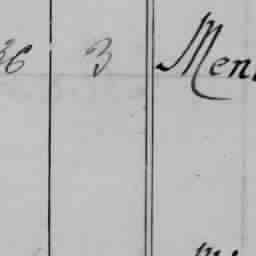 36 3 Men